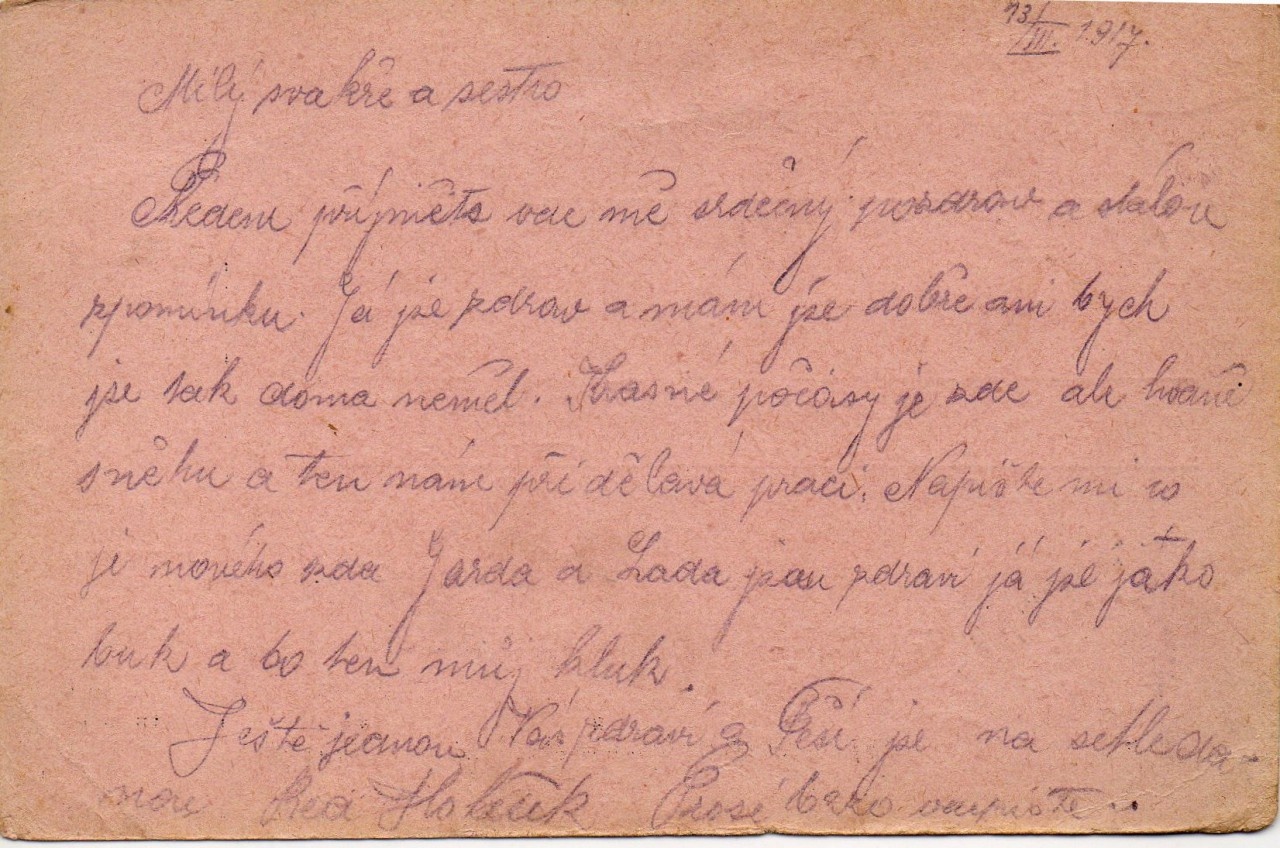 13/III. 1917.
Milý svakře a sestro
Předem příjměte ode mě srdečný pozdrav a stálou
zpomínku. Já jse zdrav a mám jse dobře ani bych
jse tak doma neměl. Krasné počásy je zde ale hodně
sněhu a ten nám přidělává praci. Napište mi co
je nového zda Jarda a Lada jsou zdraví já jse jako
buk a co ten můj kluk.
Ještě jednou Vás zdraví a Těší jse na schleda-
nou Prosé brzo